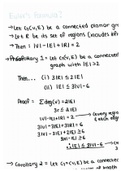 Euler's Formula:
• Let G(V,E) be a connected planar gr
• Let R be its set of regions (includes infi
→ Then |V|-|E|+|R| = 2
Corollary 1 = Let G(V,E) be a connected
graph with |E|≥2
Then... (i) 3|R| ≤ 2|E|
(ii) |E| ≤ 3|V|-6
Proof: Σdeg(v) = 2|E|
3r ≤ 2|E|
3|V|-3|E|+3|R| = 6
3|V|-3|E|+2|E| ≥ 6
3|V|-|E| ≥ 6
|E| ≤ 3|V|-6
→ Corollary 2 = Let G=(V,E) be a connec